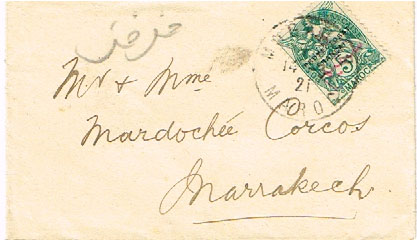 Mr & Mme
Mardochée Corcos
Marrakech
21
MARO
MAROC
5